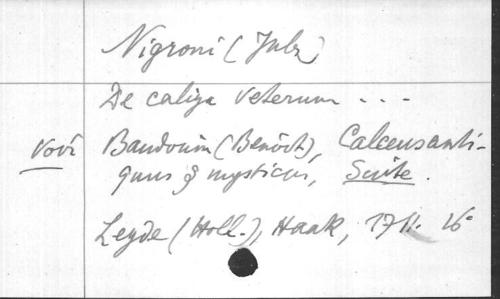 Nigroni (Jul.)
De caliga veterum . . .
Voir Baudouin (Benoît), Calceus anti-
quus & mysticus, Suite.
Leyde (Holl.), Haak, 1711. 16°